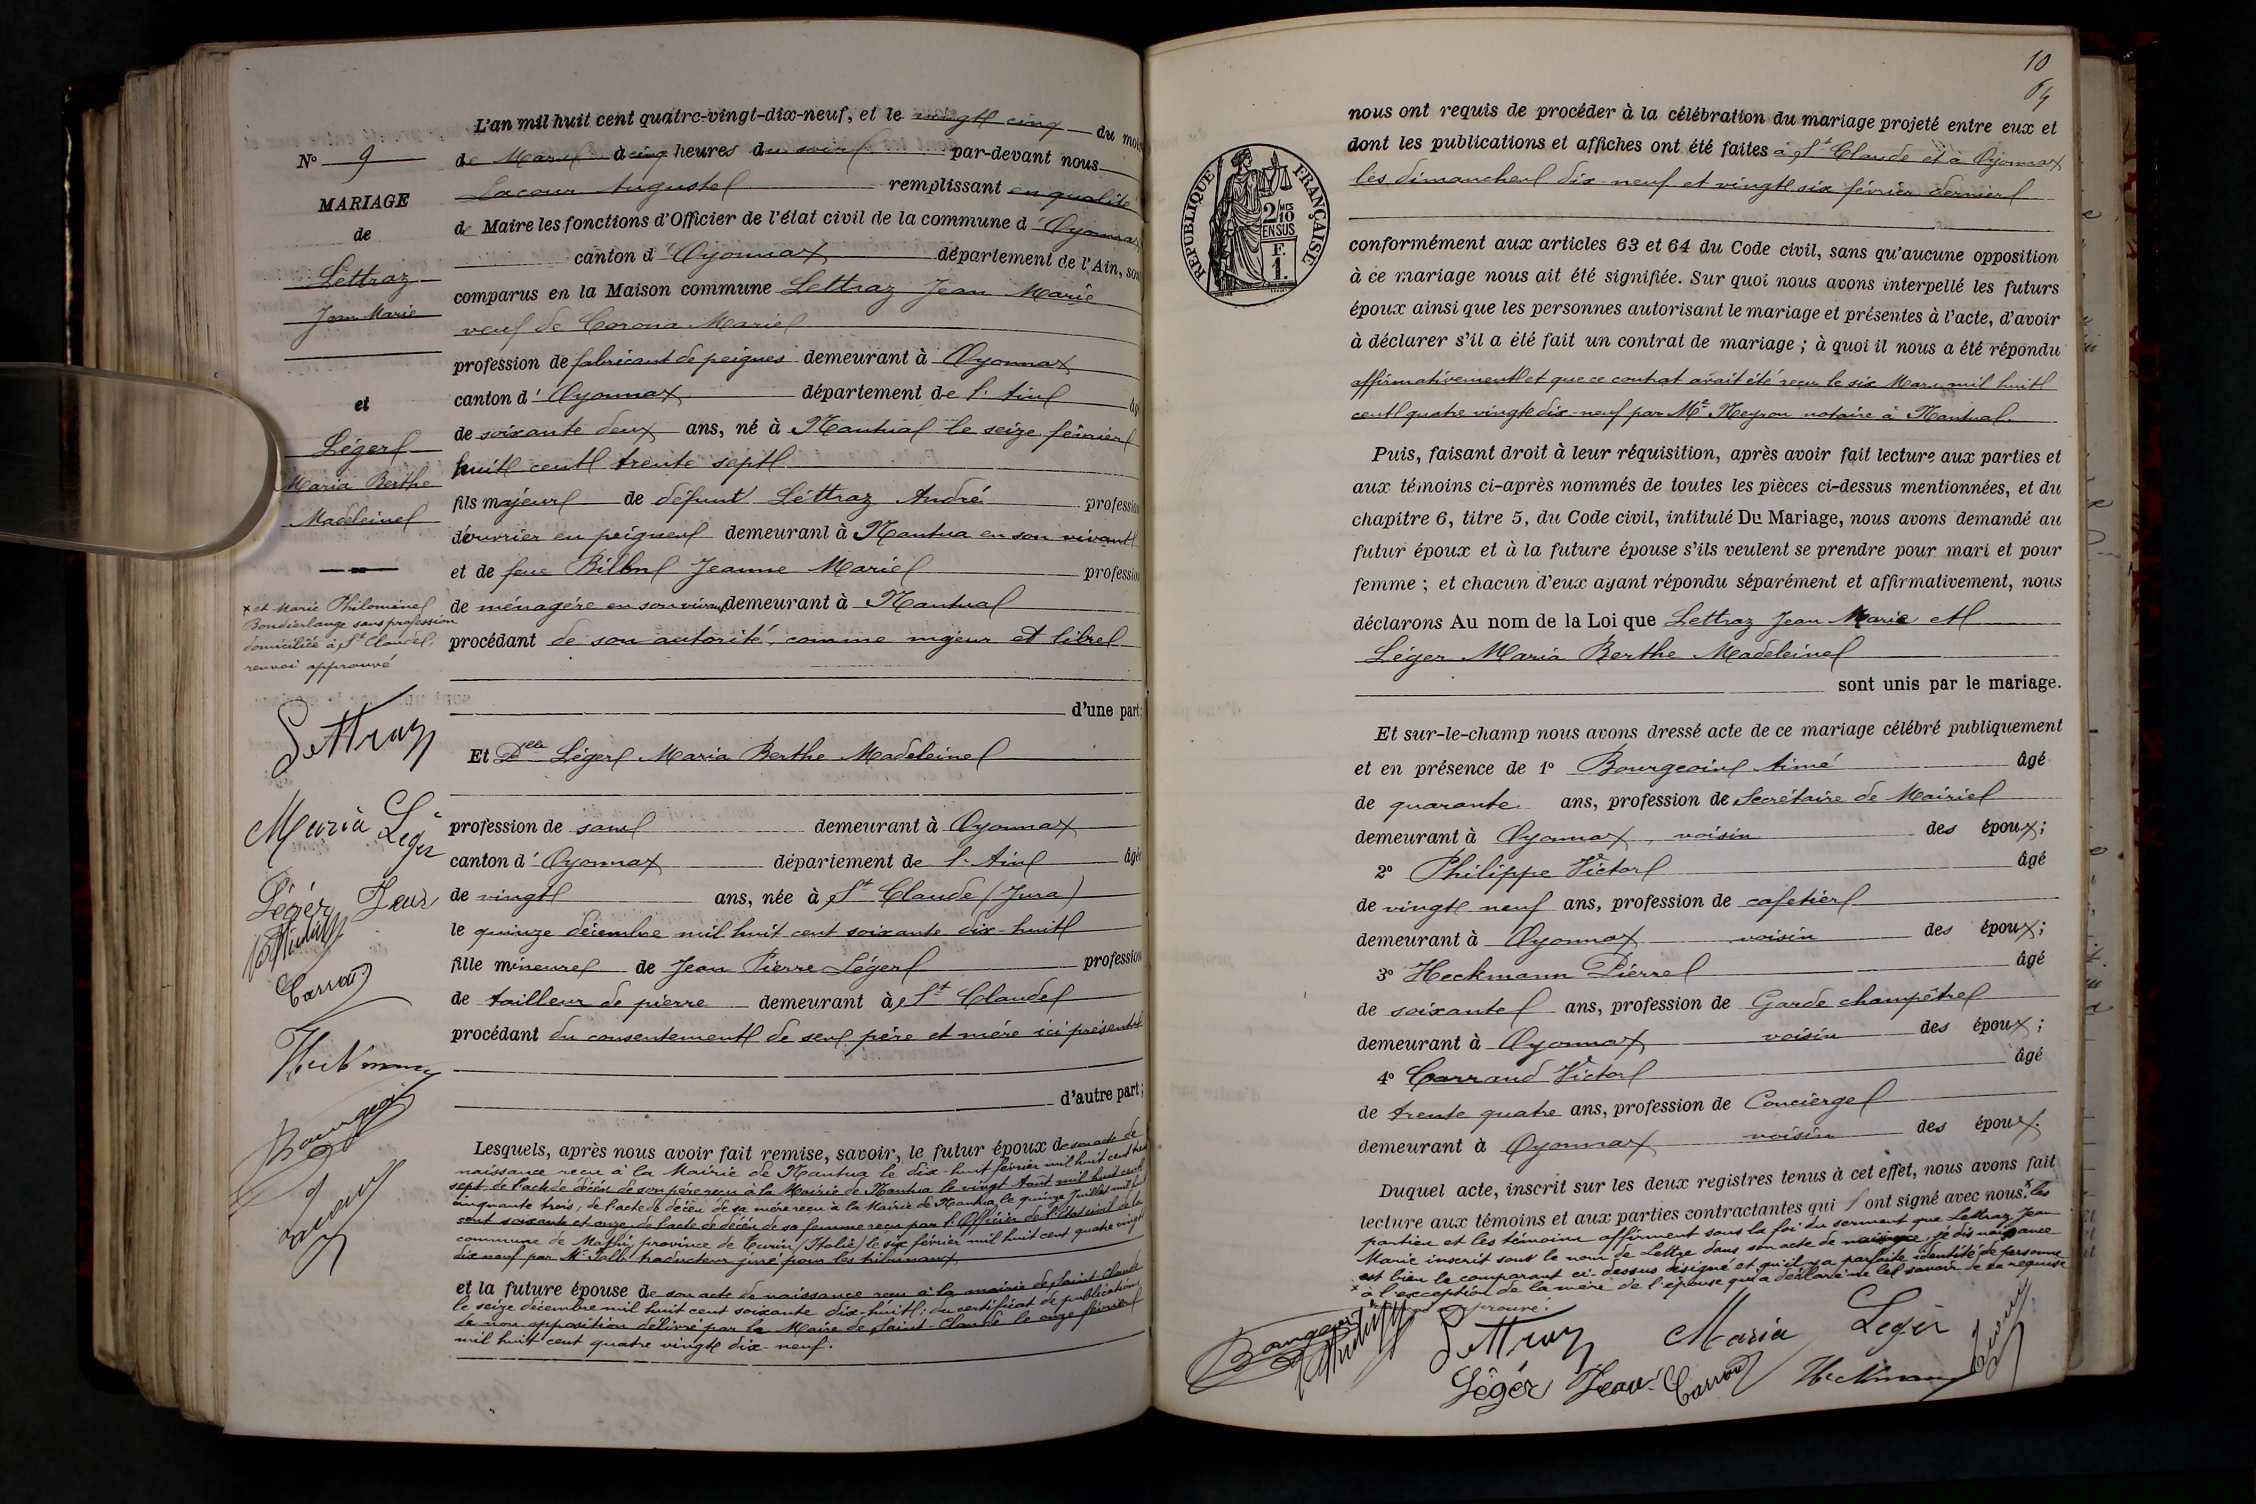 N° 9
MARIAGE
de
Lettraz
Jean Marie
et
Léger
Maria Berthe
Madeleine
x et Marie Philomène
Bondierlange sans profession
domiciliée à St Claude,
renvoi approuvé
Lettraz
Maria Léger
Léger Jean
Carrand
Heckmann
Bourgeoin
L'an mil huit cent quatre-vingt-dix-neuf, et le vingt cinq du mois
de Mars à cinq heures du soir par-devant nous
Lacour Auguste remplissant en qualité
de Maire les fonctions d'Officier de l'état civil de la commune d'Oyonnax
canton d'Oyonnax département de l'Ain, sont
comparus en la Maison commune Lettraz Jean Marie
veuf de Corona Marie
profession de fabricant de peignes demeurant à Oyonnax
canton d'Oyonnax département de l'Ain âgé
de soixante deux ans, né à Nantua le seize février
huit cent trente sept
fils majeur de défunt Lettraz André profession
d'ouvrier en peignes demeurant à Nantua en son vivant
et de feue Jeanne Marie profession
de ménagère en son vivant demeurant à Nantua
procédant de son autorité, comme majeur et libre
d'une part;
Et Delle Léger Maria Berthe Madeleine
profession de sans demeurant à Oyonnax
canton d'Oyonnax département de l'Ain âgée
de vingt ans, née à St Claude (Jura)
le quinze décembre mil huit cent soixante dix-huit
fille mineure de Jean Pierre Léger profession
de tailleur de pierre demeurant à St Claude
procédant du consentement de ses père et mère ici présents
d'autre part;
Lesquels, après nous avoir fait remise, savoir, le futur époux de son acte de
naissance reçu à la Mairie de Nantua le dix-huit février mil huit cent trente
sept, de l'acte de décès de son père reçu à la Mairie de Nantua le vingt Août mil huit cent
cinquante trois, de l'acte de décès de sa mère reçu à la Mairie de Nantua le quinze Juillet mil huit
cent soixante et onze, de l'acte de décès de sa femme reçu par l'Officier de l'état civil de la
commune de Mathi, province de Turin (Italie) le six février mil huit cent quatre vingt
dix neuf par Mr traducteur juré pour les tribunaux
et la future épouse de son acte de naissance reçu à la mairie de Saint Claude
le seize décembre mil huit cent soixante dix-huit; du certificat de publication
de non opposition délivré par le Maire de Saint-Claude le onze février
mil huit cent quatre vingt dix-neuf.
10
64
RÉPUBLIQUE FRANÇAISE
2/10 MES
EN SUS
F.
1.
nous ont requis de procéder à la célébration du mariage projeté entre eux et
dont les publications et affiches ont été faites à St Claude et à Oyonnax
les dimanches dix-neuf et vingt six février dernier
conformément aux articles 63 et 64 du Code civil, sans qu'aucune opposition
à ce mariage nous ait été signifiée. Sur quoi nous avons interpellé les futurs
époux ainsi que les personnes autorisant le mariage et présentes à l'acte, d'avoir
à déclarer s'il a été fait un contrat de mariage; à quoi il nous a été répondu
affirmativement et que ce contrat avait été reçu le six Mars mil huit
cent quatre vingt dix-neuf par Me Neyron notaire à Nantua.
Puis, faisant droit à leur réquisition, après avoir fait lecture aux parties et
aux témoins ci-après nommés de toutes les pièces ci-dessus mentionnées, et du
chapitre 6, titre 5, du Code civil, intitulé Du Mariage, nous avons demandé au
futur époux et à la future épouse s'ils veulent se prendre pour mari et pour
femme; et chacun d'eux ayant répondu séparément et affirmativement, nous
déclarons Au nom de la Loi que Lettraz Jean Marie et
Léger Maria Berthe Madeleine
sont unis par le mariage.
Et sur-le-champ nous avons dressé acte de ce mariage célébré publiquement
et en présence de 1° Bourgeoin Aimé âgé
de quarante ans, profession de Secrétaire de Mairie
demeurant à Oyonnax, voisin des époux;
2° Philippe Victor âgé
de vingt neuf ans, profession de cafetier
demeurant à Oyonnax voisin des époux;
3° Heckmann Pierre âgé
de soixante ans, profession de Garde champêtre
demeurant à Oyonnax voisin des époux;
4° Carrand Victor âgé
de trente quatre ans, profession de Concierge
demeurant à Oyonnax voisin des époux.
Duquel acte, inscrit sur les deux registres tenus à cet effet, nous avons fait
lecture aux témoins et aux parties contractantes qui ont signé avec nous. x les
parties et les témoins affirment sous la foi du serment que Lettraz Jean
Marie inscrit sous le nom de Lettre dans son acte de naissance, je dis naissance
est bien le comparant ci-dessus désigné et qu'il y a parfaite identité de personne
x à l'exception de la mère de l'épouse qui a déclaré ne le savoir de ce requise
approuvé.
Bourgeoin
Lettraz
Maria Léger
Léger Jean
Carrand
Heckmann